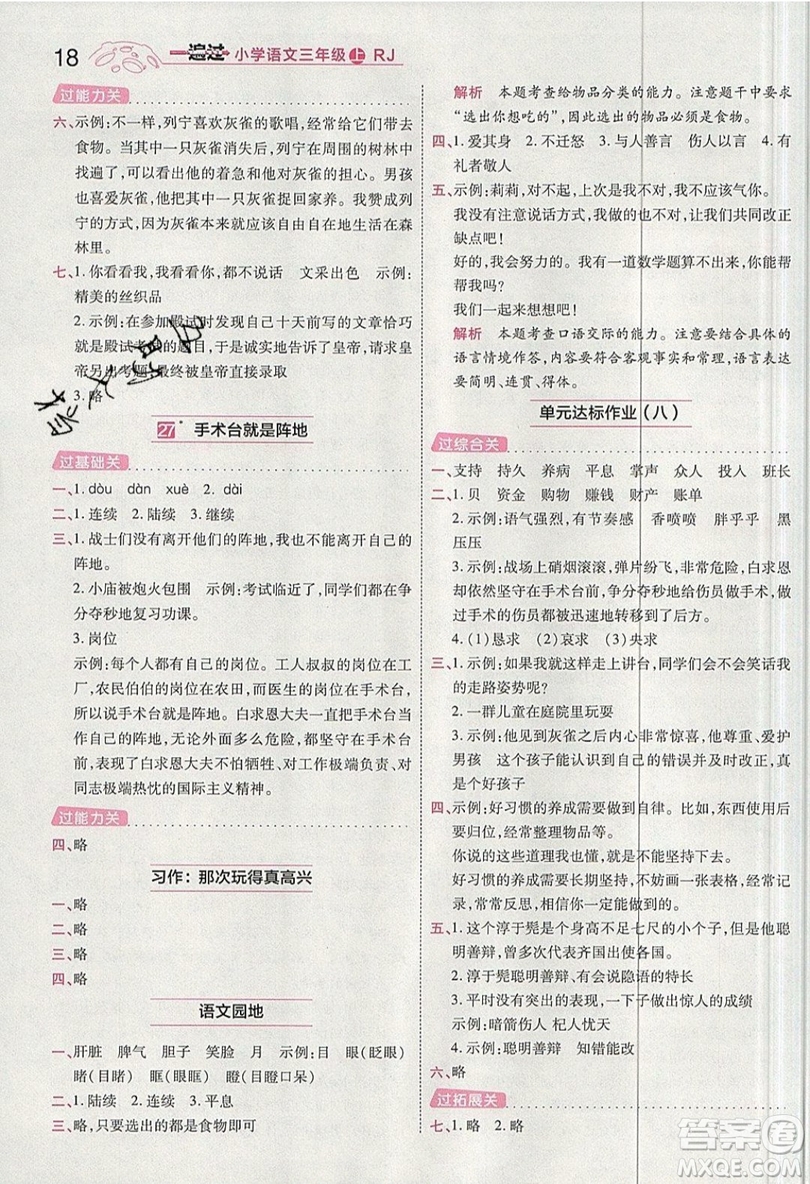 18
一遍过 小学语文三年级上 RJ
过能力关
六、示例:不一样,列宁喜欢灰雀的歌唱,经常给它们带去
食物。当其中一只灰雀消失后,列宁在周围的树林中
找遍了,可以看出他的着急和他对灰雀的担心。男孩
也喜爱灰雀,他把灰雀捉回家养。我赞成列
宁的方式,因为灰雀本来就应该自由自在地生活在森
林里。
七、1.你看看我,我看看你,都不说话 文采出色 示例:
精美的丝织品
2.示例:在参加殿试时发现自己十天前写的文章恰巧
就是殿试考题的题目,于是诚实地告诉了皇帝,皇
帝另出考题,最终被皇帝直接录取
3.略
27* 手术台就是阵地
过基础关
一、1.dòu dàn xuè 2.dài
二、1.连续 2.陆续 3.继续
三、1.战士们没有离开他们的阵地,我也没有离开我的
阵地。
2.小庙被炮火包围 示例:考试临近了,同学们都在争
分夺秒地复习功课。
3.岗位
示例:每个人都有自己的岗位。工人叔叔的岗位在工
厂,农民伯伯的岗位在农田,而医生的岗位在手术台,
所以,手术台就是医生的岗位。白求恩大夫一直把手术台当
作自己的阵地,无论外面多么危险,都坚守在手术台
前。这体现了白求恩大夫不怕牺牲、对工作极端负责、对
同志极端热忱的国际主义精神。
过能力关
四、略
习作:那次玩得真高兴
一、略
二、略
三、略
四、略
语文园地
一、肝脏 脾气 胆子 笑脸 月 示例:目 眼(眨眼)
睹(目睹) 眠(睡眠) 瞪(瞪目口呆)
二、1.陆续 2.牵挂 3.平息
三、略,只要选出的都是食物即可
解析 本题考查给物品分类的能力。注意题干中要求
“选出你想吃的”,因此选出的物品必须是食物。
四、1.爱其身 2.不迁怒 3.与人善言 伤人以言 4.有
礼者敬人
五、示例:莉莉,对不起,上次是我不对,不应该气你。
我没有注意说话方式,我的方式不对,让我们共同改正
缺点吧!
好的,我会努力的。我有一道数学题算不出来。
我们一起来想想吧!
解析 本题考查口语交际的能力。注意要结合具体的
语言情境作答。内容要符合客观事实和常理,语言表达
要简明、连贯、得体。
单元达标作业(八)
过综合关
一、支持 持久 养病 平息 掌声 众人 投入 班长
二、1.贝 资金 购物 赚钱 财产 账单
2.示例:语气强烈,有节奏感 香喷喷 胖乎乎 黑
压压
3.示例:战场上硝烟滚滚,弹片纷飞,非常危险,白求恩
却依然坚守在手术台,争分夺秒地给伤员做手术,做
过手术的伤员都被迅速地转移到了后方。
4.(1)恳求 (2)哀求 (3)央求
三、1.示例:如果我就这样走上讲台,同学们会不会笑话我
的走路姿势呢?
2.一群儿童在庭院里玩耍
3.示例:他见到灰雀之后非常惊喜,他尊重、爱护
男孩 这个孩子能认识到自己的错误并及时改正,是
个好孩子
四、示例:好习惯的养成需要做到自律。比如,东西用完后
要归位,经常整理物品等。
你说的这些道理我也懂,就是很难坚持。
好习惯的养成需要长期坚持,不妨画一张表格,经常记
录,常常反思,自然会慢慢养成好习惯。
五、1.这个淳于髡是个身高不足七尺的小个子,但是他聪
明善辩,曾多次代表齐国出使各国。
2.淳于髡聪明善辩,有会说隐语的特长
3.平时没有突出的表现,一下子做出惊人的成绩
示例:暗箭伤人 杞人忧天
4.示例:聪明善辩 知错能改
六、略
过拓展关
七、1.略 2.略
答案圈
MXQE.COM